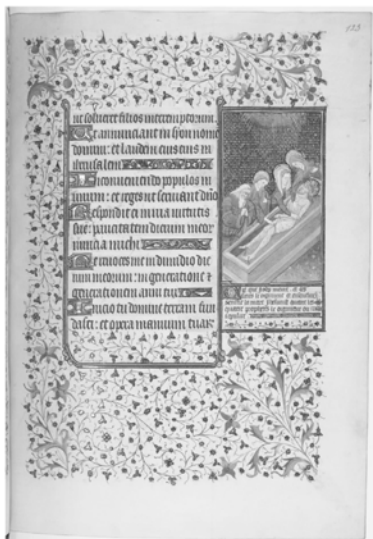 123
ut solveret filios interemptorum.
Ut annuncient in syon nomē
domini : et laudem eius in
iherusalem
In conveniendo populos in
unum : et reges ut serviant dño
Respondit ei in via virtutis
sue : paucitatem dierum meor
nuncia michi
Ne revoces me in dimidio die
rum meorum : in generatione et
generationem anni tui
Inicio tu domine terram fun
dasti : et opera manuum tuar